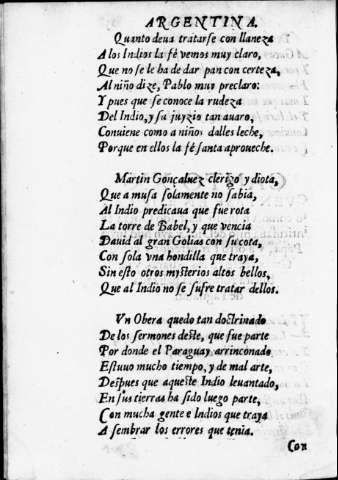 ARGENTINA.
Quanto deua tratarse con llaneza
A los Indios la fè vemos muy claro,
Que no se le ha de dar pan con certeza,
Al niño dize, Pablo muy preclaro:
Y pues que se conoce la rudeza
Del Indio, y su juyzio tan auaro,
Conuiene como a niños dalles leche,
Porque en ellos la fè santa aproueche.
Martin Gonçaluez clerigo ydiota,
Que a musa solamente no sabia,
Al Indio predicaua que fue rota
La torre de Babel, y que vencia
Dauid al gran Golias con su cota,
Con sola vna hondilla que traya,
Sin esto otros mysterios altos bellos,
Que al Indio no se sufre tratar dellos.
Vn Obera quedo tan doctrinado
De los sermones deste, que fue parte
Por donde el Paraguay arrinconado
Estuuo mucho tiempo, y de mal arte,
Despues que aqueste Indio leuantado,
En sus tierras ha sido luego parte,
Con mucha gente e Indios que traya
A sembrar los errores que tenia.
Con